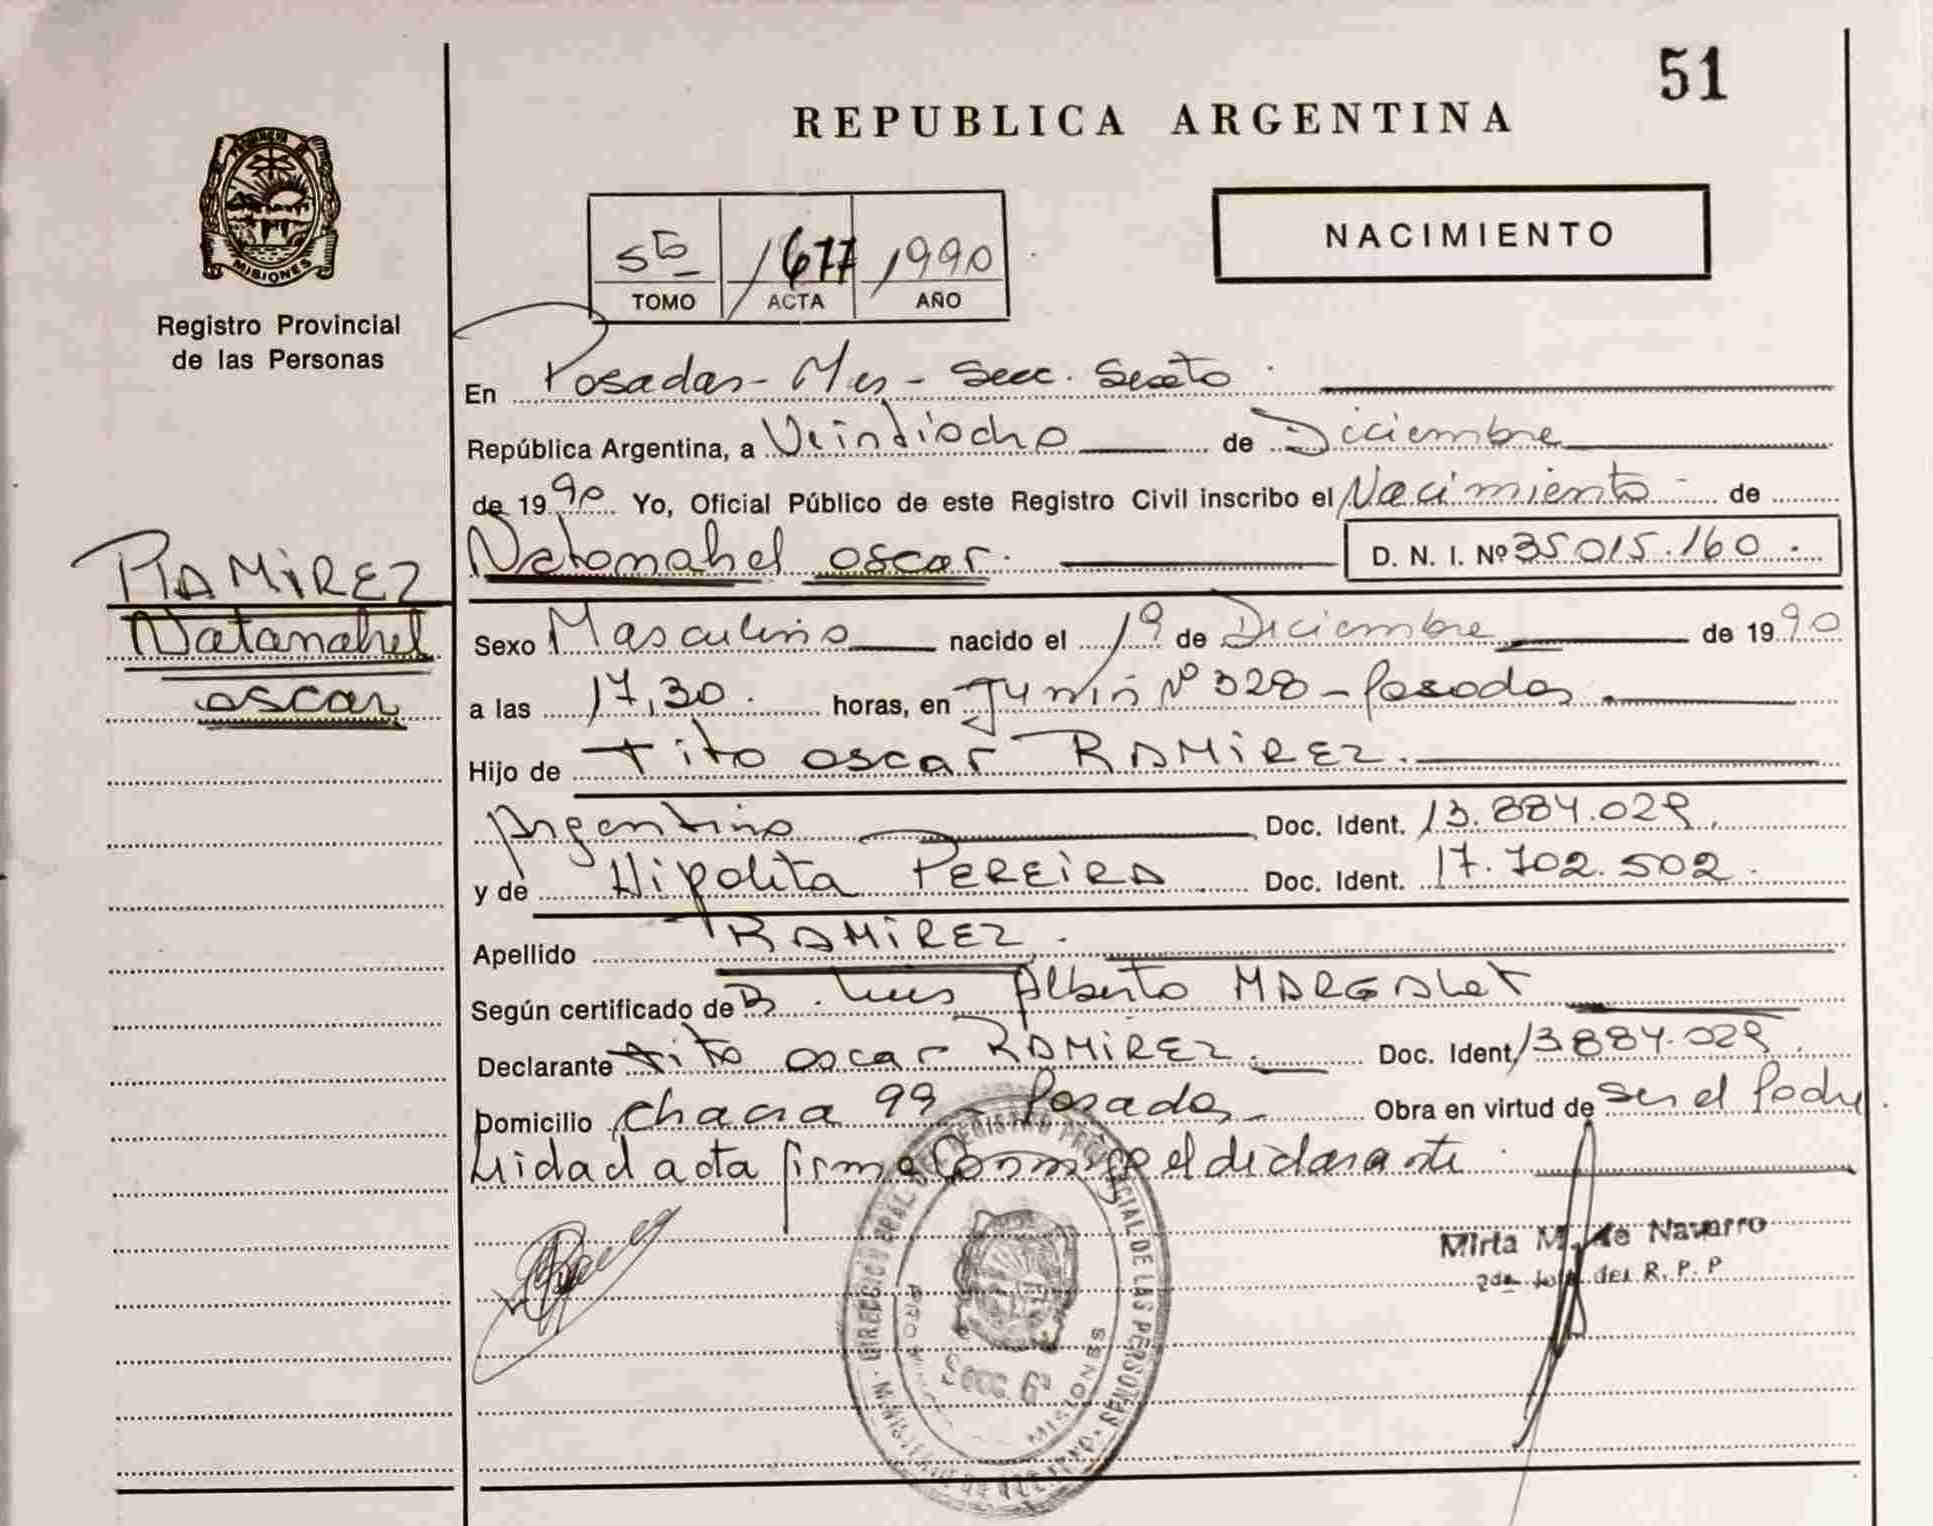 51
REPUBLICA ARGENTINA
NACIMIENTO
MISIONES
Registro Provincial
de las Personas
5to 1677 1990
TOMO ACTA AÑO
En Posadas - Mnes - Secc. Sexta
República Argentina, a Veintiocho de Diciembre
de 1990 Yo, Oficial Público de este Registro Civil inscribo el Nacimiento de
RAMIREZ
Natanahel
oscar
Natanahel oscar. D. N. I. Nº 35.015.160.
Sexo Masculino nacido el 19 de Diciembre de 1990
a las 17,30. horas, en Junin Nº 328 - Posadas
Hijo de tito oscar RAMIREZ.
Argentino Doc. Ident. 13.884.029.
y de Hipolita PEREIRA Doc. Ident. 17.702.502.
Apellido RAMIREZ.
Según certificado de Dr. Luis Alberto MARGALET
Declarante tito oscar RAMIREZ. Doc. Ident. 13884.029.
Domicilio chacra 99 - Posadas Obra en virtud de ser el Padre.
Leida el acta firma conmigo el declarante.
Mirta M. de Navarro
2da Jefa del R. P. P
DIRECCION GRAL DEL REGISTRO PROVINCIAL DE LAS PERSONAS
MISIONES
SECC. 6ª